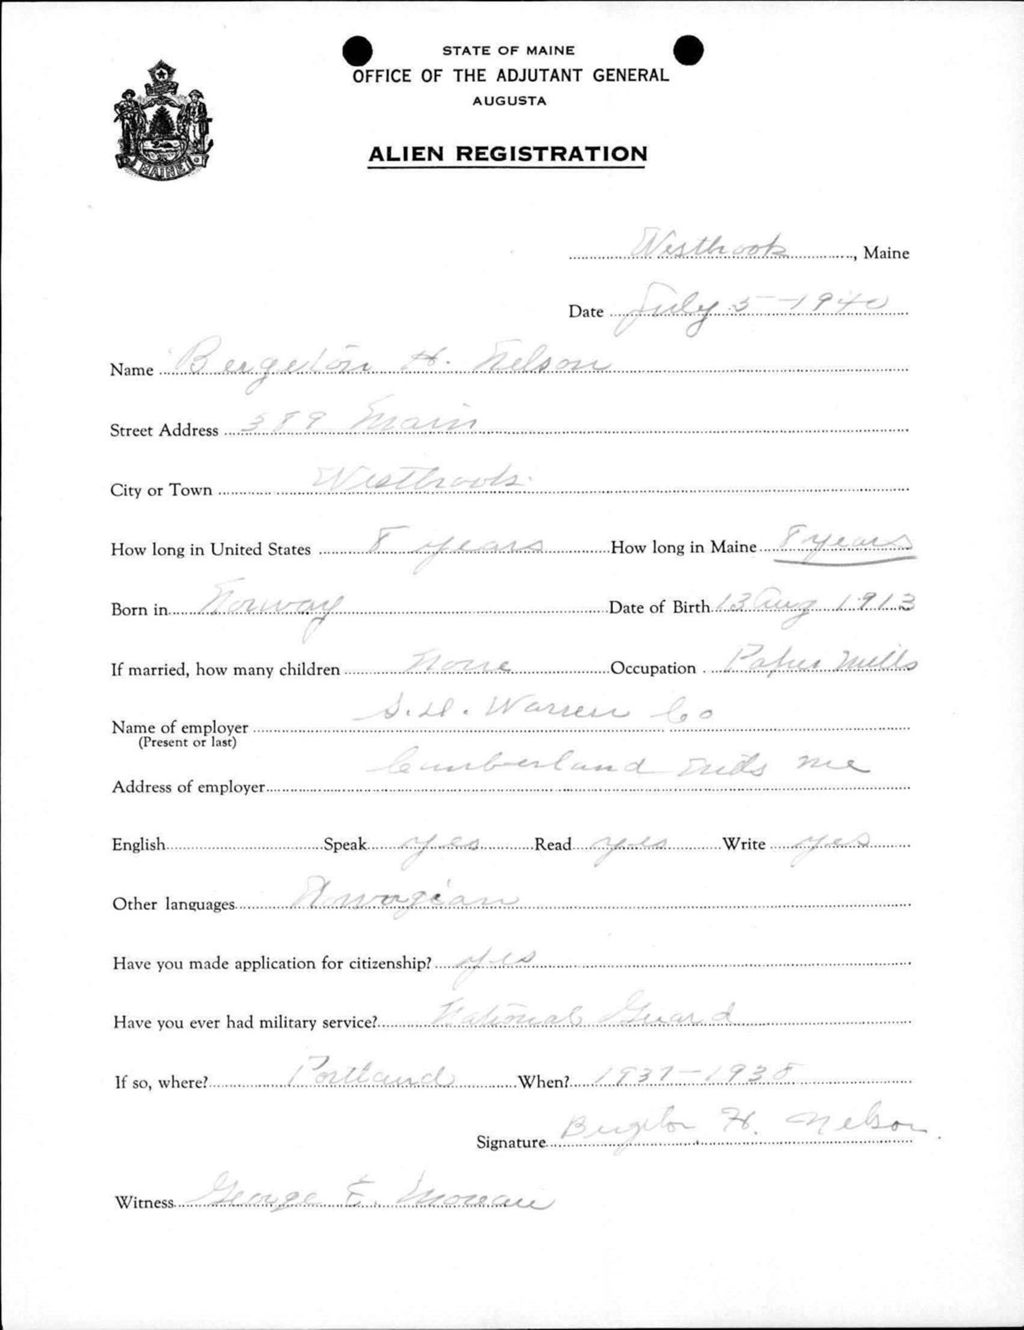 STATE OF MAINE
OFFICE OF THE ADJUTANT GENERAL
AUGUSTA
ALIEN REGISTRATION
MAINE
Westbrook, Maine
Date July 5 - 1940
Name H. Nelson
Street Address 389 Main
City or Town Westbrook
How long in United States 8 years How long in Maine 8 years
Born in Norway Date of Birth 13 Aug 1913
If married, how many children None Occupation Paper Mills
Name of employer S.D. Warren Co
(Present or last)
Address of employer Cumberland Mills Me
English Speak yes Read yes Write yes
Other languages Norwagian
Have you made application for citizenship? yes
Have you ever had military service? National Guard
If so, where? Portland When? 1937-1938
Signature H. Nelson
Witness George E.